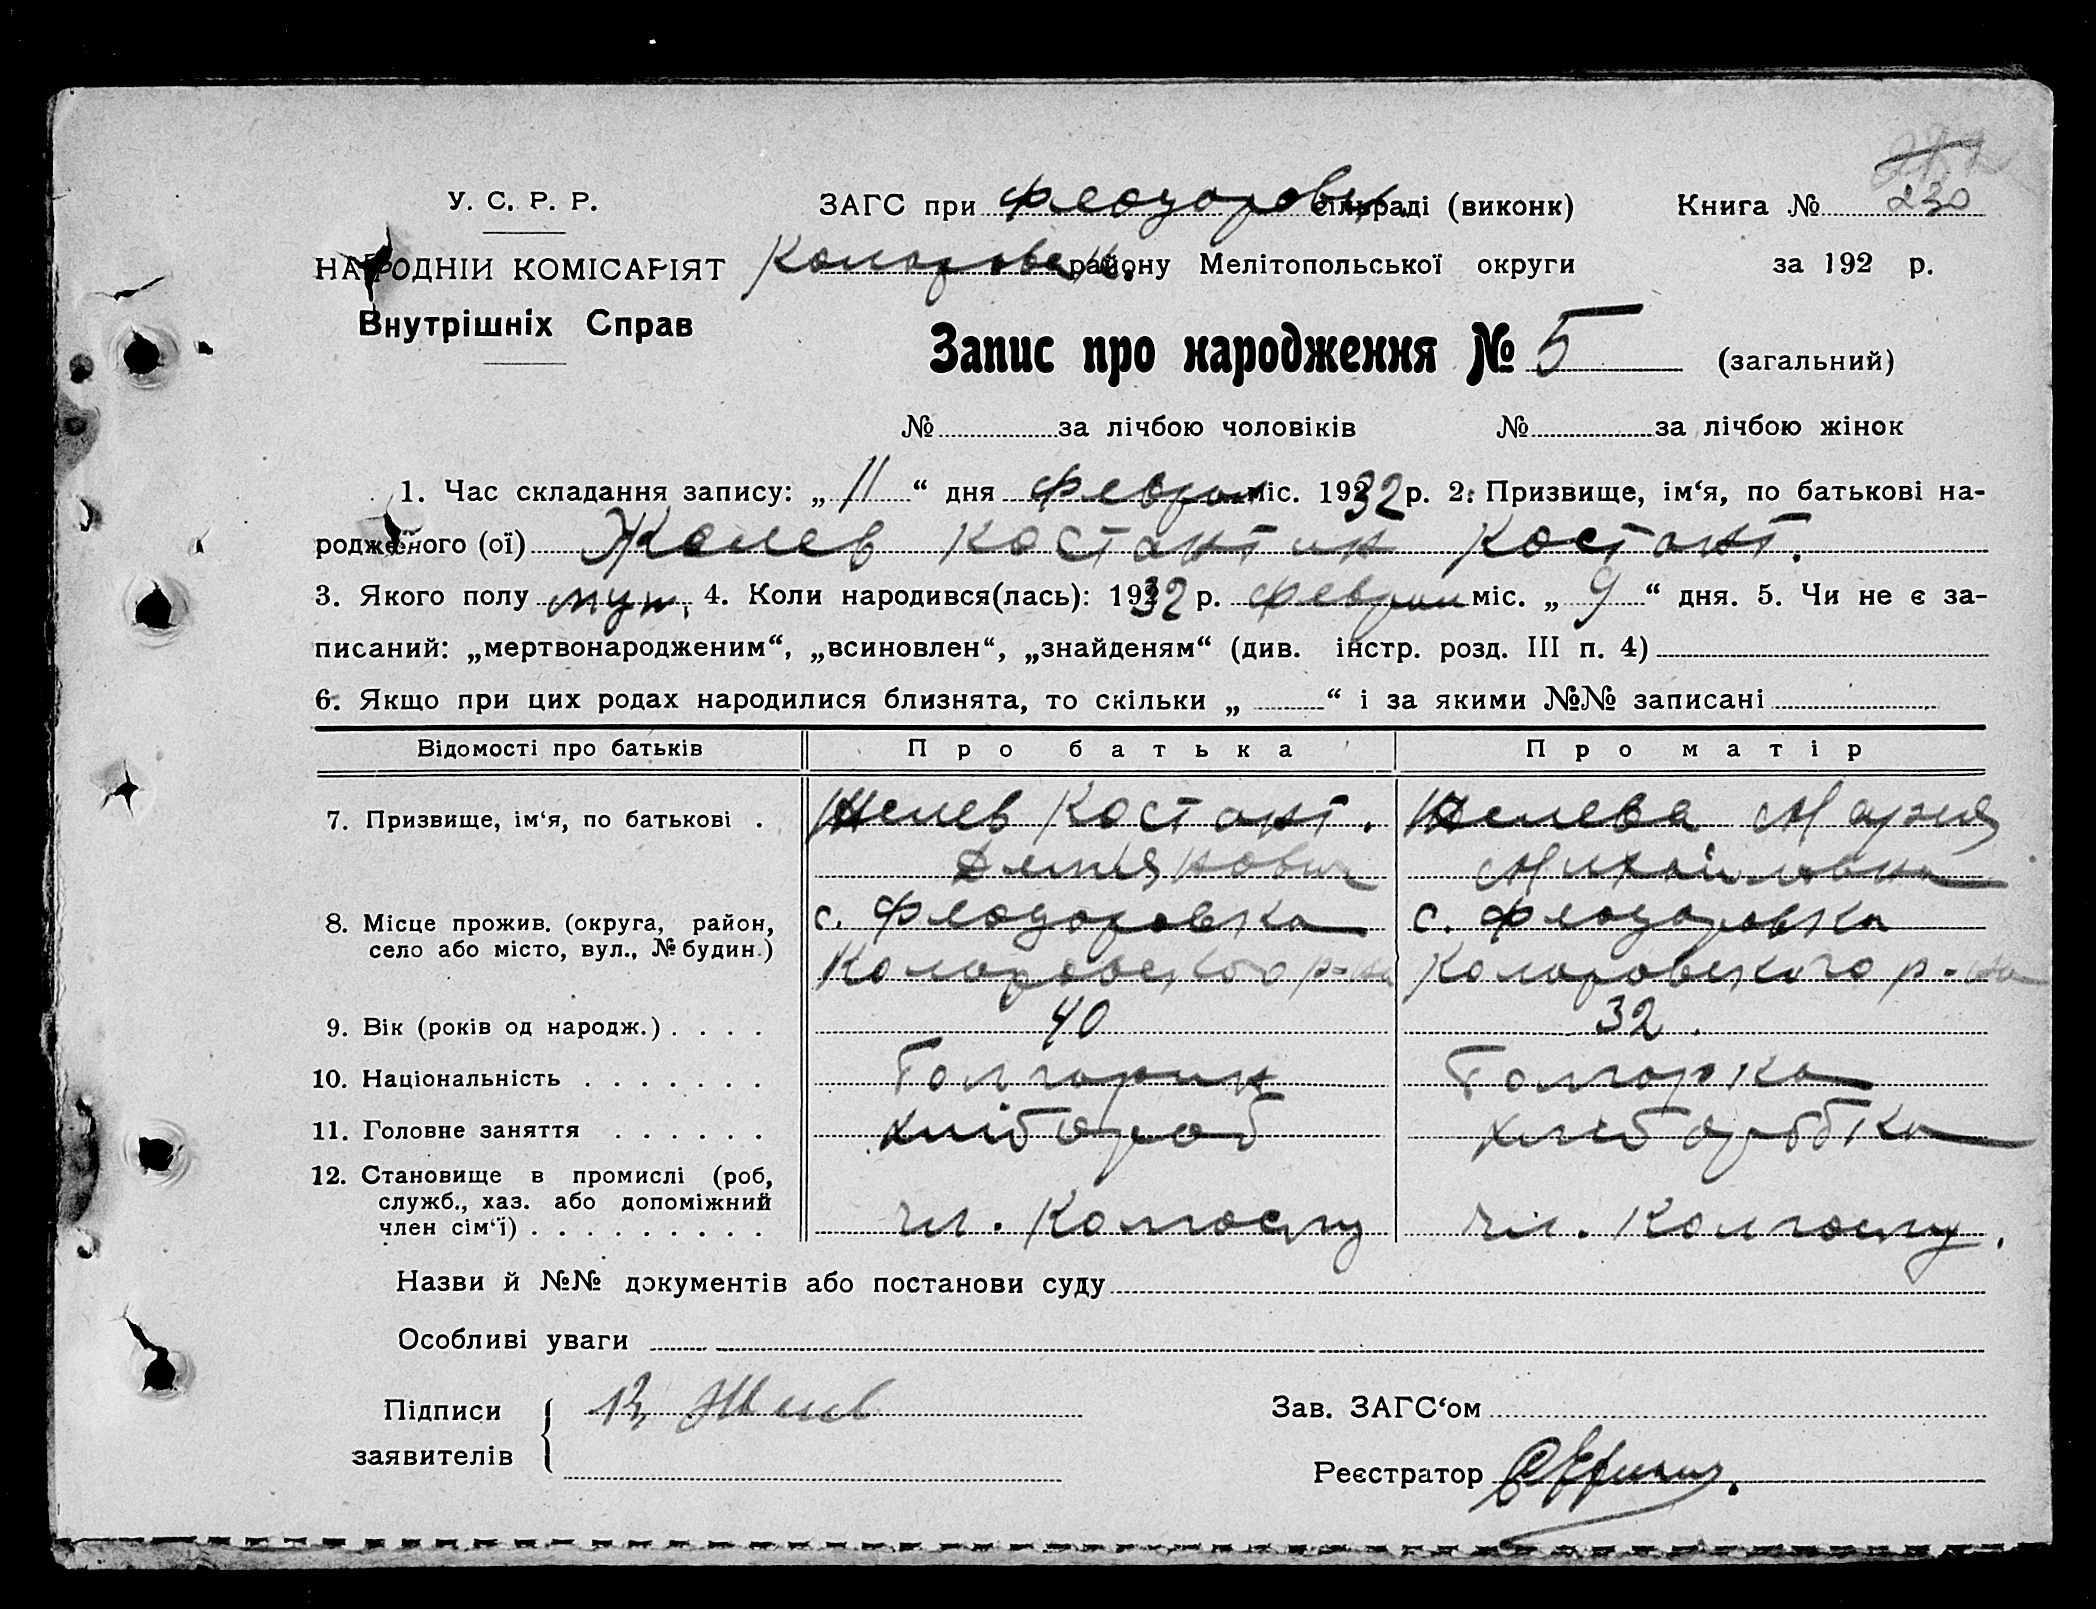 230
У. С. Р. Р.
ЗАГС при Флодоровск. сільраді (виконк) Книга №
НАРОДНІИ КОМІСАРІЯТ Коларовськ. району Мелітопольської округи за 192 р.
Внутрішніх Справ
Запис про народження № 5 (загальний)
№ за лічбою чоловіків № за лічбою жінок
1. Час складання запису: „ 11 “ дня Феврал міс. 1932 р. 2. Призвище, ім‘я, по батькові на-
родженого (ої) Желев Костантин Костант.
3. Якого полу муж. 4. Коли народився(лась): 1932 р. феврал міс. „ 9 “ дня. 5. Чи не є за-
писаний: „мертвонародженим“, „всиновлен“, „знайденям“ (див. інстр. розд. III п. 4)
6. Якщо при цих родах народилися близнята, то скільки „ “ і за якими №№ записані
Відомості про батьків Про батька Про матір
7. Призвище, ім‘я, по батькові . Желев Костант. Желева Мария
Демянович Михайловна
8. Місце прожив. (округа, район, с. Флодоровка с. Флодоровка
село або місто, вул., № будин.) Коларовского р-на Коларовского р-на
9. Вік (років од народж.) . . . . 40 32.
10. Національність . . . . . . . Болгарин Болгарка
11. Головне заняття . . . . . . хлібороб хлеборобка
12. Становище в промислі (роб,
служб., хаз. або допоміжний
член сім‘ї) . . . . . . . . . чл. Колгоспу чл. Колгоспу.
Назви й №№ документів або постанови суду
Особливі уваги
Підписи Желев Зав. ЗАГС‘ом
заявителів
Реєстратор